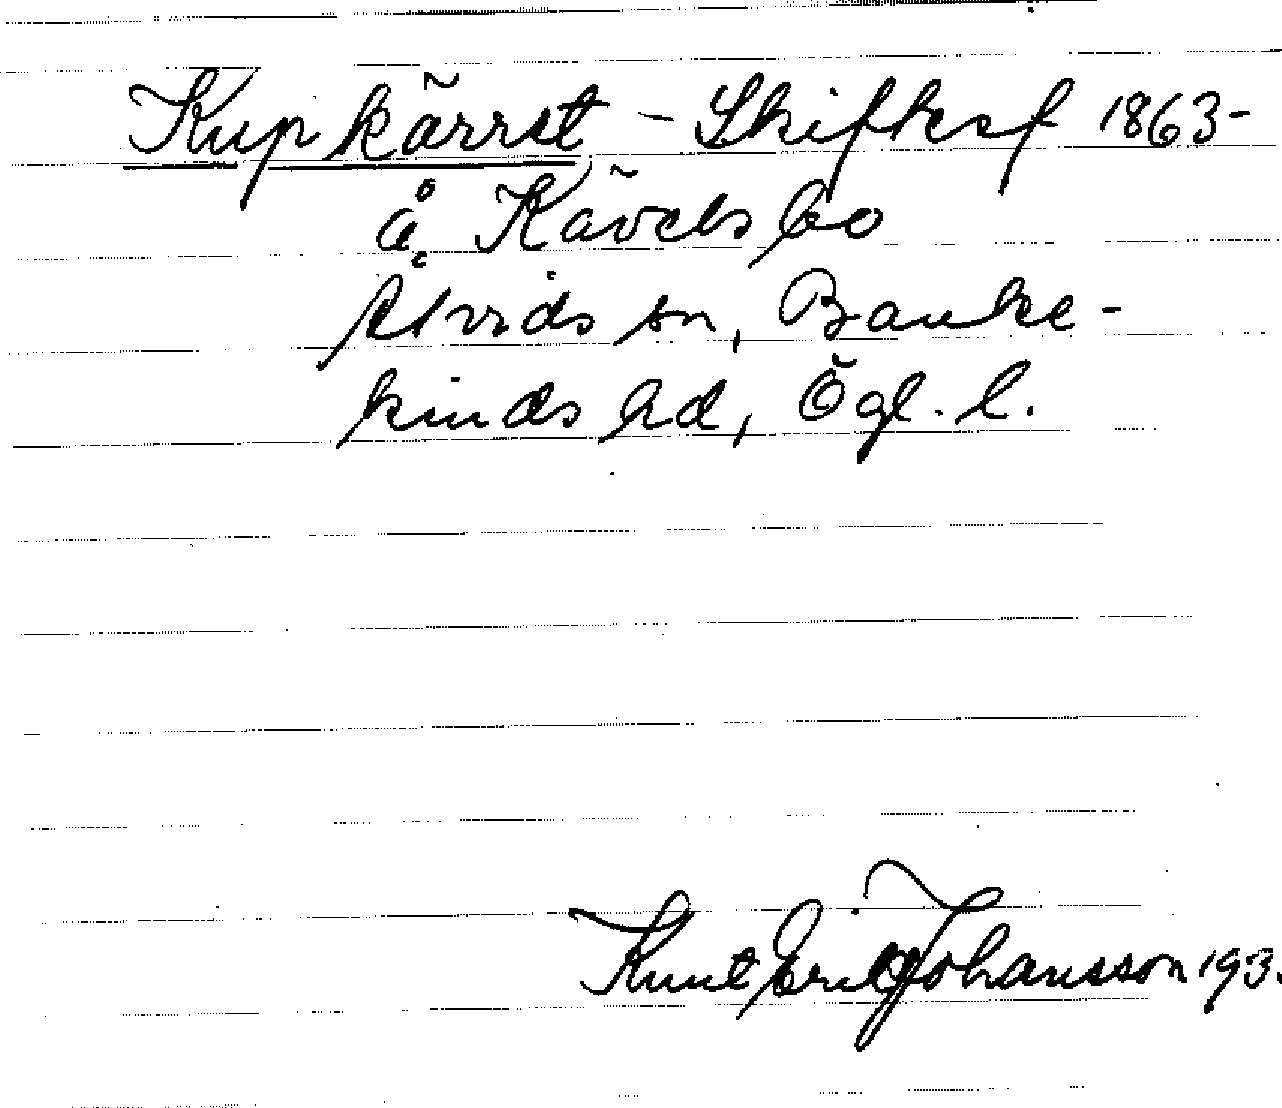 Kupkärret - Skifksf 1863-
å Kävelsbo
Åtvids sn, Banke-
kinds hd, Ögl. l.
Knut Erik Johansson 193